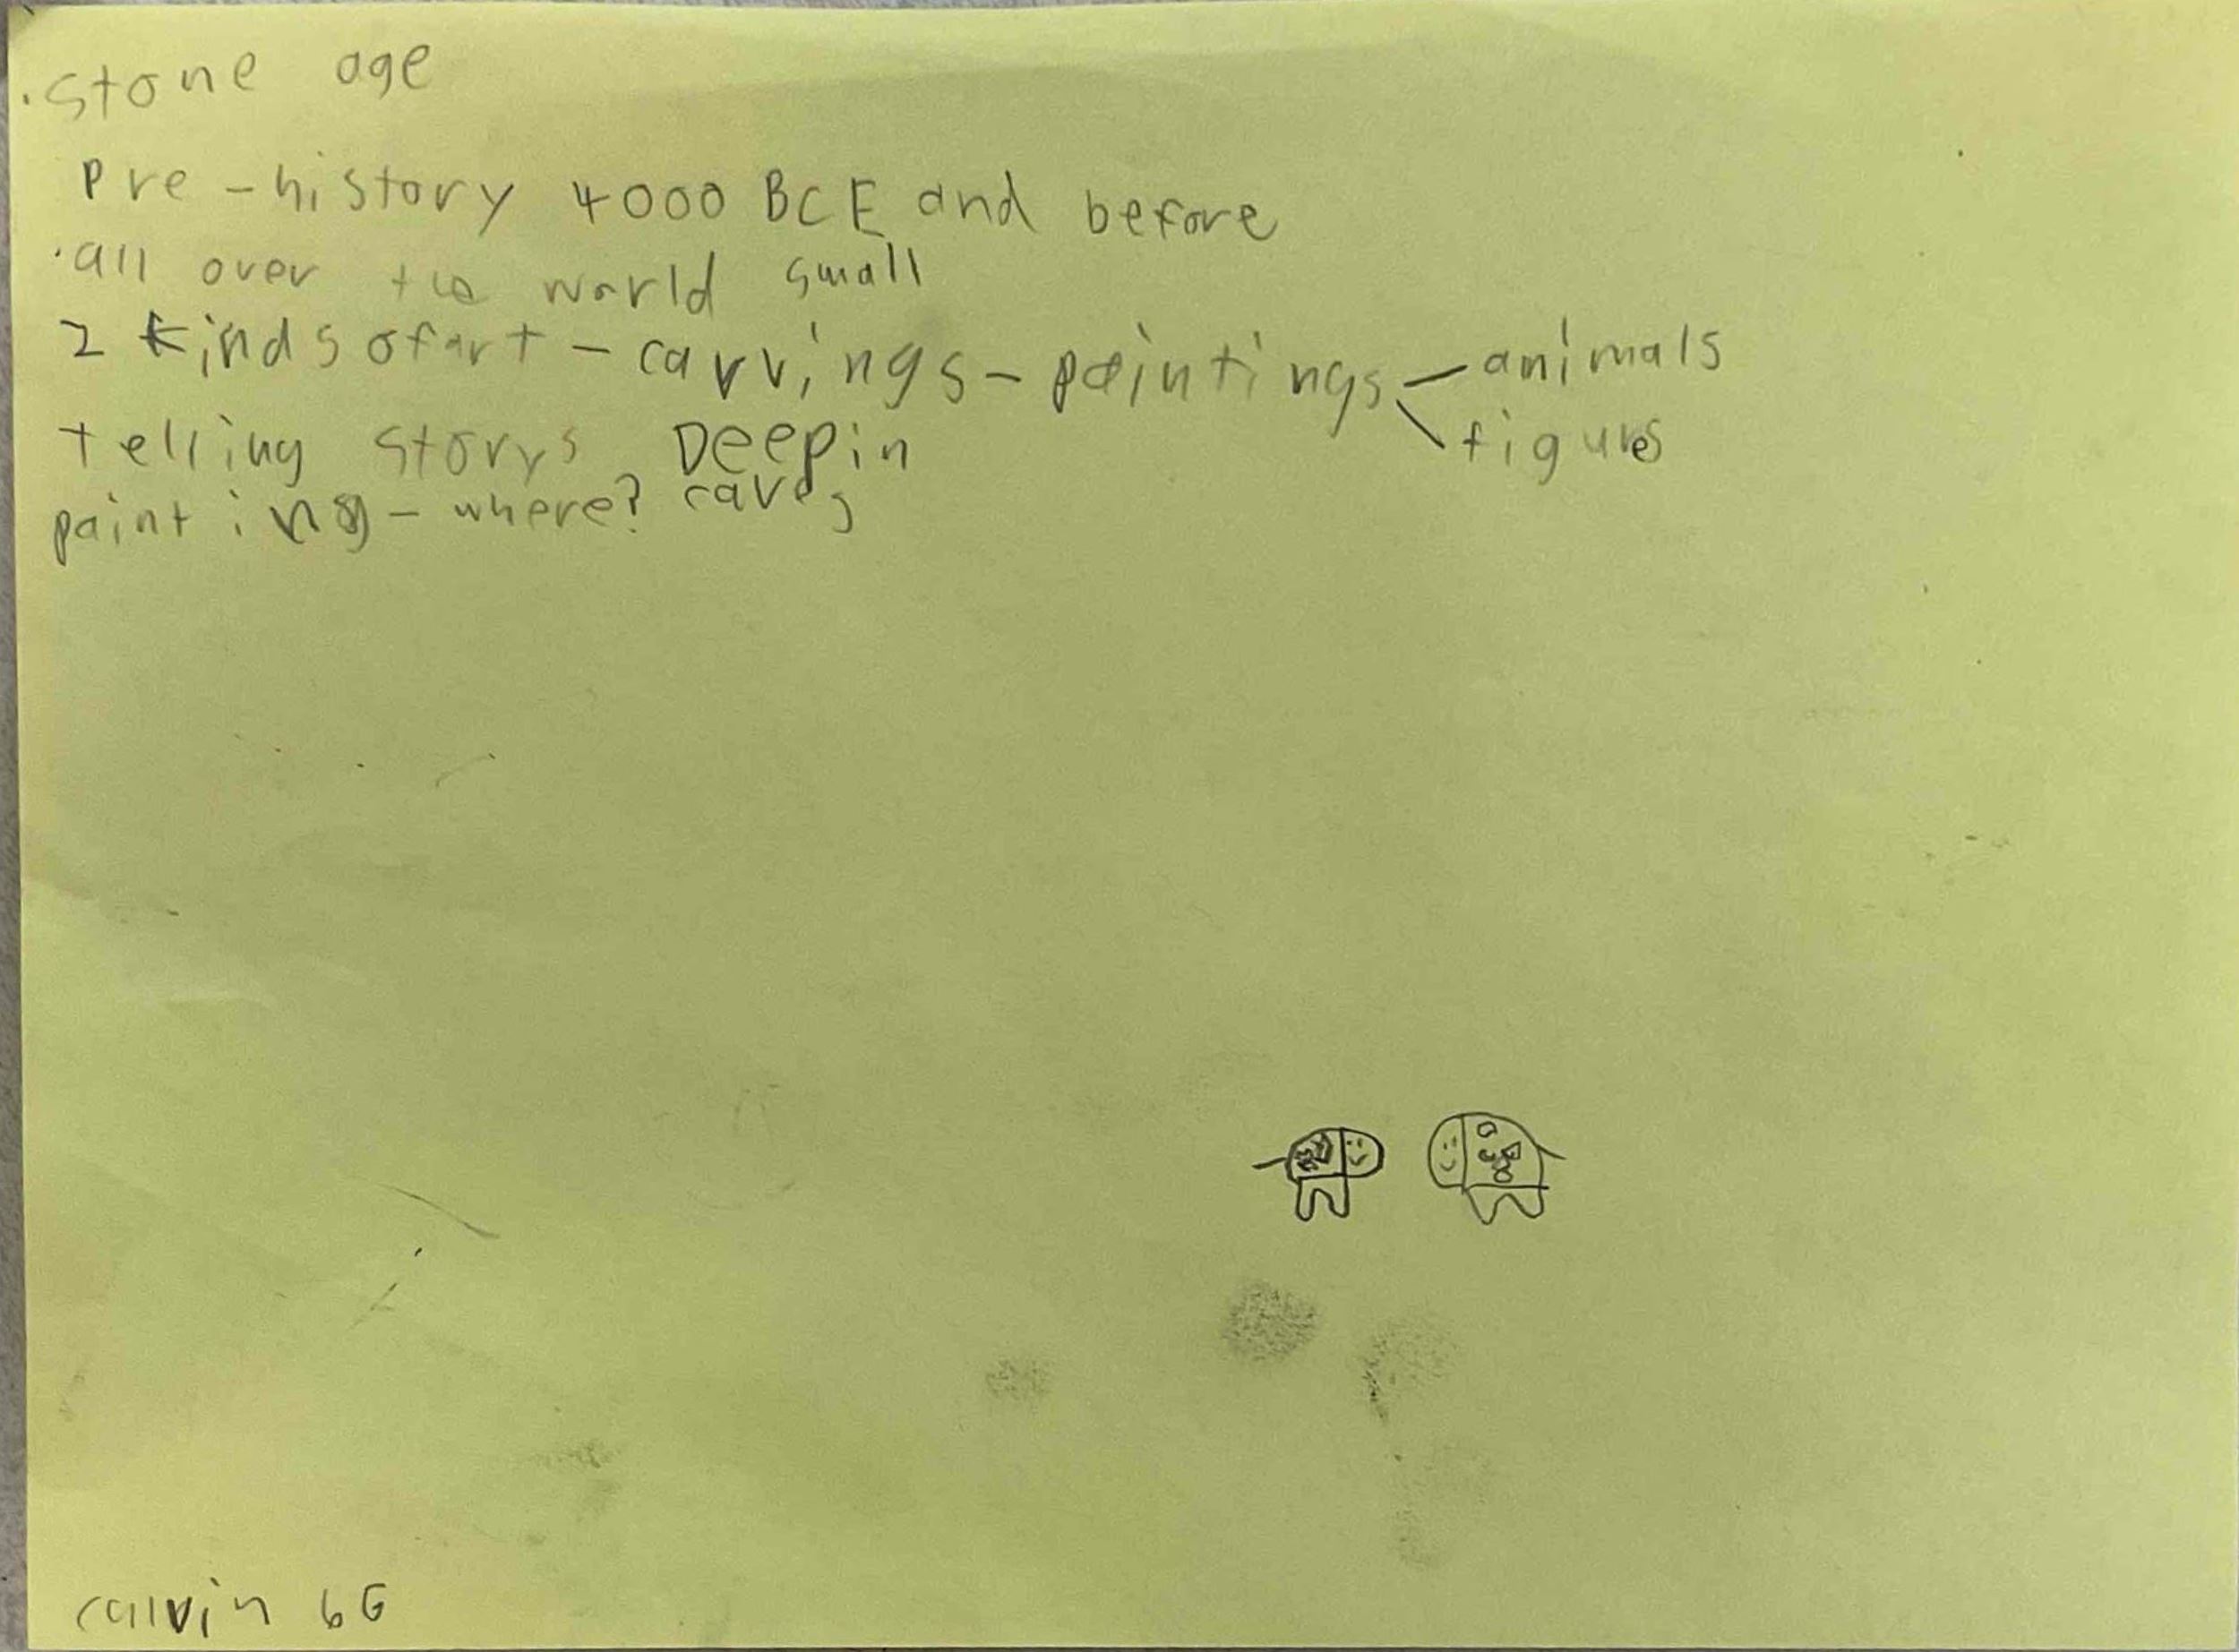 ·Stone age
Pre-history 4000 BCE and before
·all over the world small
2 kinds of art - carvings - paintings - animals
figures
telling storys Deep in
painting - where? caves
calvin 6G